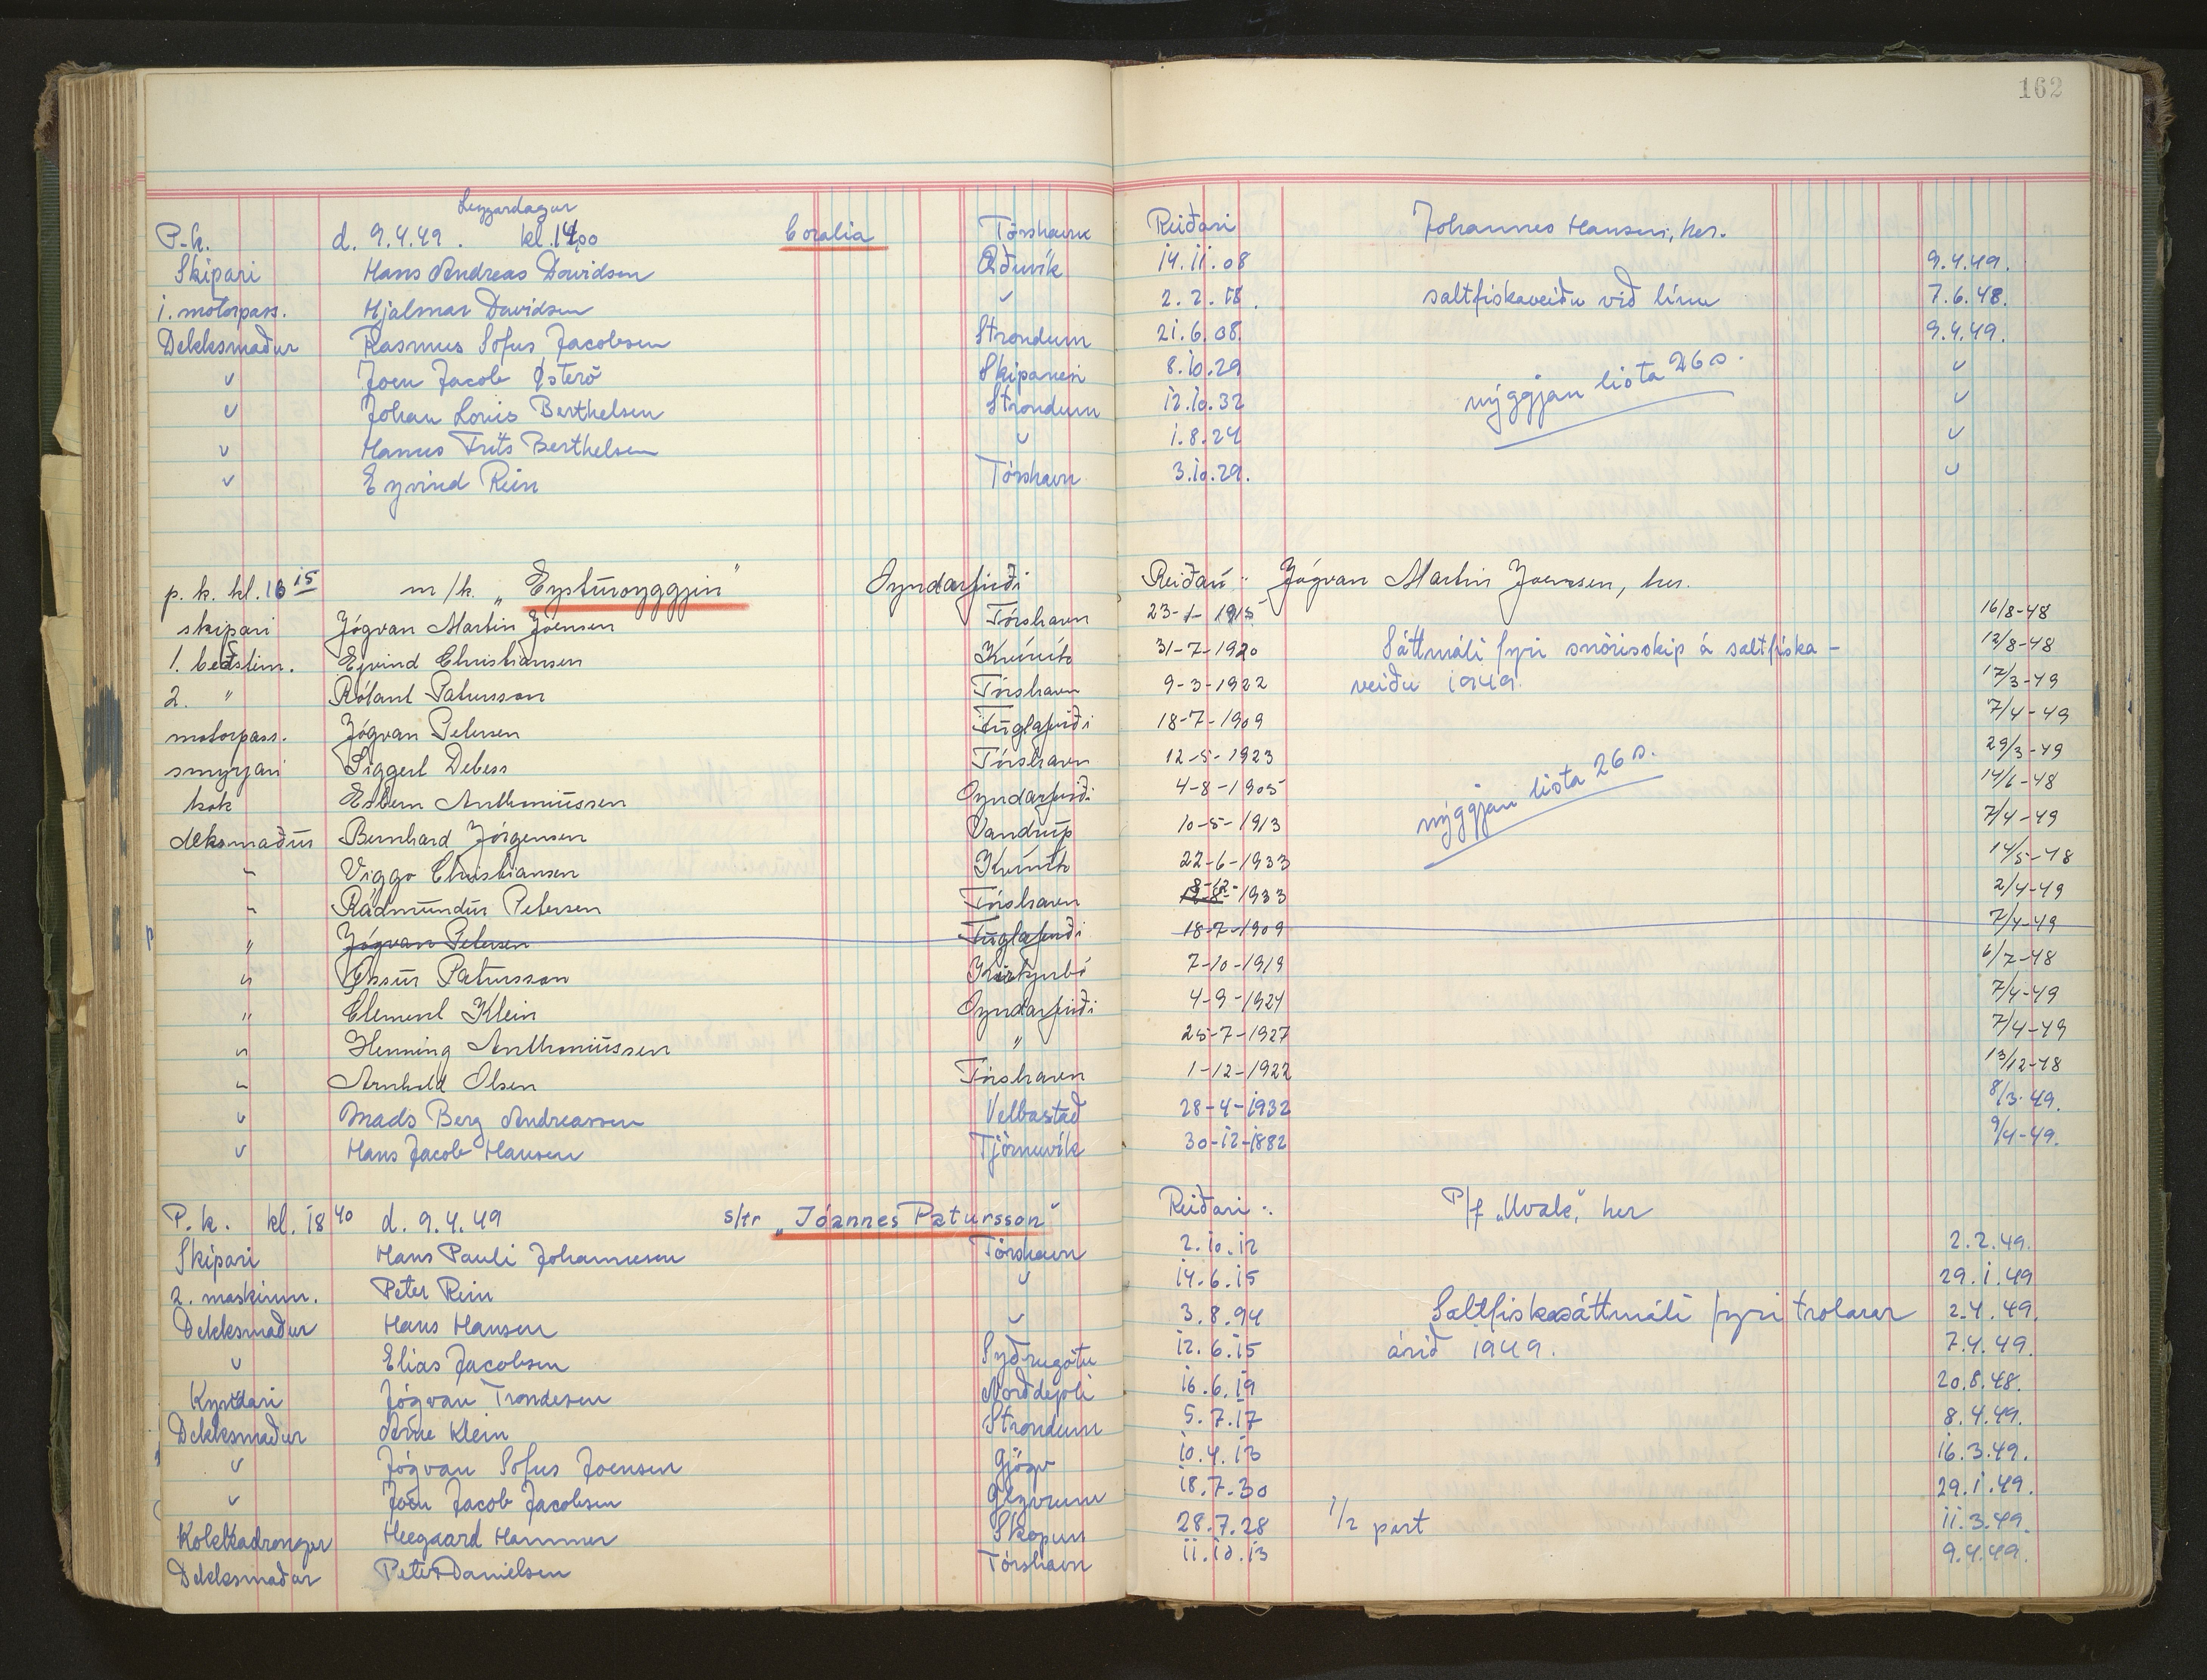 162
Leygardagur
P.k. d. 9.4.49. kl. 14,00 Coralia Tórshavn Reiðari Johannes Hansen, her.
Skipari Hans Andreas Davidsen Æðuvík 14.11.08 9.4.49.
1. motorpass. Hjalmar Davidsen 〃 2.2.18. saltfiskaveiðu við línu 7.6.48.
Dekksmaður Rasmus Sofus Jacobsen Strondum 21.6.08. 9.4.49.
〃 Joen Jacob Østerø Skipanesi 8.10.29 nýggjan lista 26 s. 〃
〃 Johan Louis Berthelsen Strondum 12.10.32 〃
〃 Hanus Frits Berthelsen 〃 1.8.24 〃
〃 Eyvind Rein Tórshavn 3.10.29. 〃
p.k. kl. 16 15 m/k. „Eysturoyggjin" Oyndarfirði Reiðari: Jógvan Martin Joensen, her.
skipari Jógvan Martin Joensen Tórshavn 23-1-1915 16/8-48
1. bedstim. Ejvind Christiansen Kvívík 31-7-1920 Sáttmáli fyri snørisskip á saltfiska- 12/8-48
2. " Róland Patursson Tórshavn 9-3-1922 veiðu 1949. 17/3-49
motorpass. Jógvan Petersen Fuglafirði 18-7-1909 7/4-49
smyrjari Siggert Debess Tórshavn 12-5-1923 29/3-49
kok Esbern Anthoniussen Oyndarfirði 4-8-1905 nýggjan lista 26 s. 14/6-48
deksmaður Bernhard Jórgensen Vandrup 10-5-1913 7/4-49
" Viggo Christiansen Kvívík 22-6-1933 14/5-48
" Rádmundur Petersen Tórshavn 8-12-1933 2/4-49
" Jógvan Petersen Fuglafirði 18-7-1909 7/4-49
" Øssur Patursson Kirkjubø 7-10-1919 6/7-48
" Clement Klein Oyndarfirði 4-9-1924 7/4-49
" Henning Anthoniussen " 25-7-1927 7/4-49
" Arnhold Olsen Tórshavn 1-12-1922 13/12-48
〃 Mads Berg Andreassen Velbastað 28-4-1932 8/3-49.
〃 Hans Jacob Hansen Tjørnuvík 30-12-1882 9/4-49.
P.k. kl. 18 40 d. 9.4.49 s/tr „Jóannes Patursson" Reiðari: P/f „Hvale", her
Skipari Hans Pauli Johannesen Tórshavn 2.10.12 2.2.49.
2. maskinm. Peter Rein 〃 14.6.15 29.1.49
Dekksmaður Hans Hansen 〃 3.8.94 Saltfiskasáttmáli fyri trolarar 2.4.49.
〃 Elias Jacobsen Syðrugøtu 12.6.15 árið 1949. 7.4.49.
Kyndari Jógvan Trondesen Norðdepli 16.6.19 20.8.48.
Dekksmaður Arne Klein Strondum 5.7.17 8.4.49.
〃 Jógvan Sofus Joensen Gjógv 10.4.13 16.3.49.
〃 Joen Jacob Jacobsen Glyvrum 18.7.30 29.1.49.
Kokkadrongur Heegaard Hammer Skopun 28.7.28 1/2 part 11.3.49.
Dekksmaður Peter Danielsen Tórshavn 11.10.13 9.4.49.